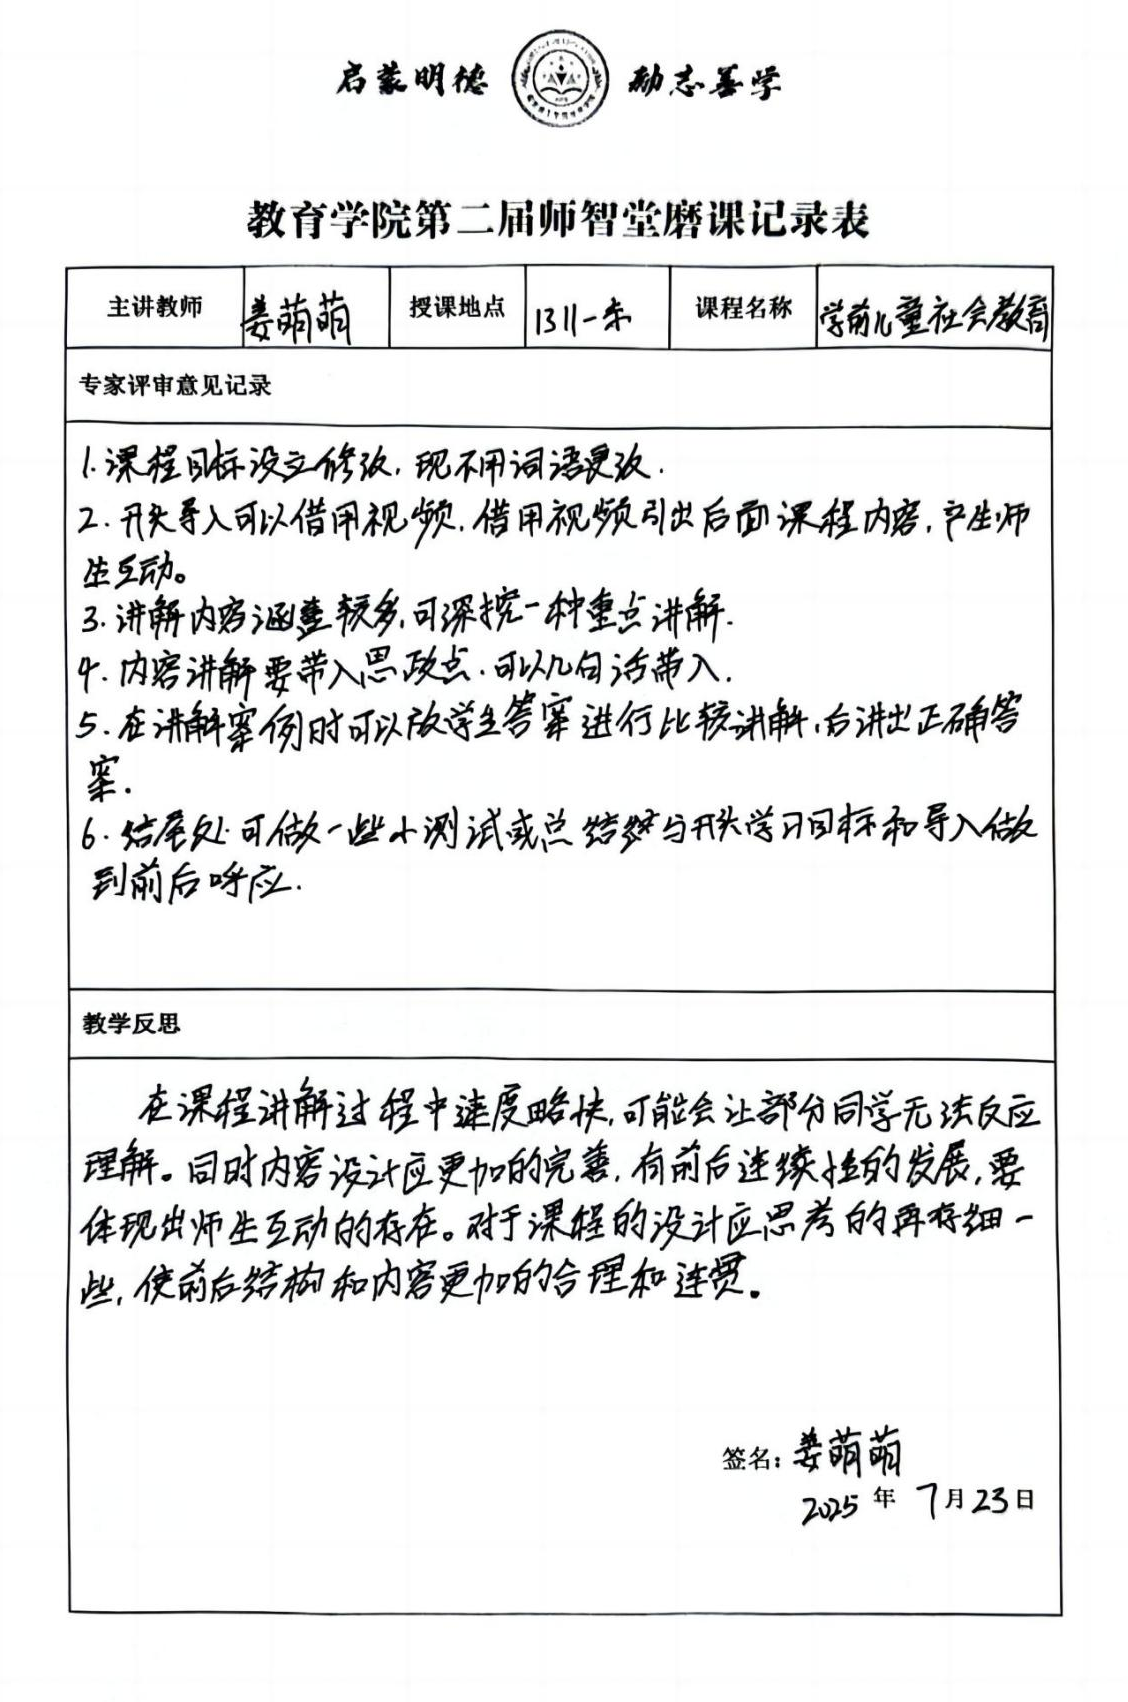 启蒙明德 励志善学
教育学院第二届师智堂磨课记录表
主讲教师 姜萌萌 授课地点 1311-东 课程名称 学前儿童社会教育
专家评审意见记录
1.课程目标设立修改,现不用词语更改.
2.开头导入可以借用视频,借用视频引出后面课程内容,产生师
生互动。
3.讲解内容涵盖较多,可深挖一种重点讲解.
4.内容讲解要带入思政点.可以几句话带入.
5.在讲解案例时可以放学生答案进行比较讲解,后讲出正确答
案.
6.结尾处可做一些小测试或总结终与开头学习目标和导入做
到前后呼应.
教学反思
在课程讲解过程中速度略快,可能会让部分同学无法反应
理解。同时内容设计应更加的完善,有前后连续性的发展,要
体现出师生互动的存在。对于课程的设计应思考的再仔细一
些,使前后结构和内容更加的合理和连贯。
签名:姜萌萌
2025年7月23日